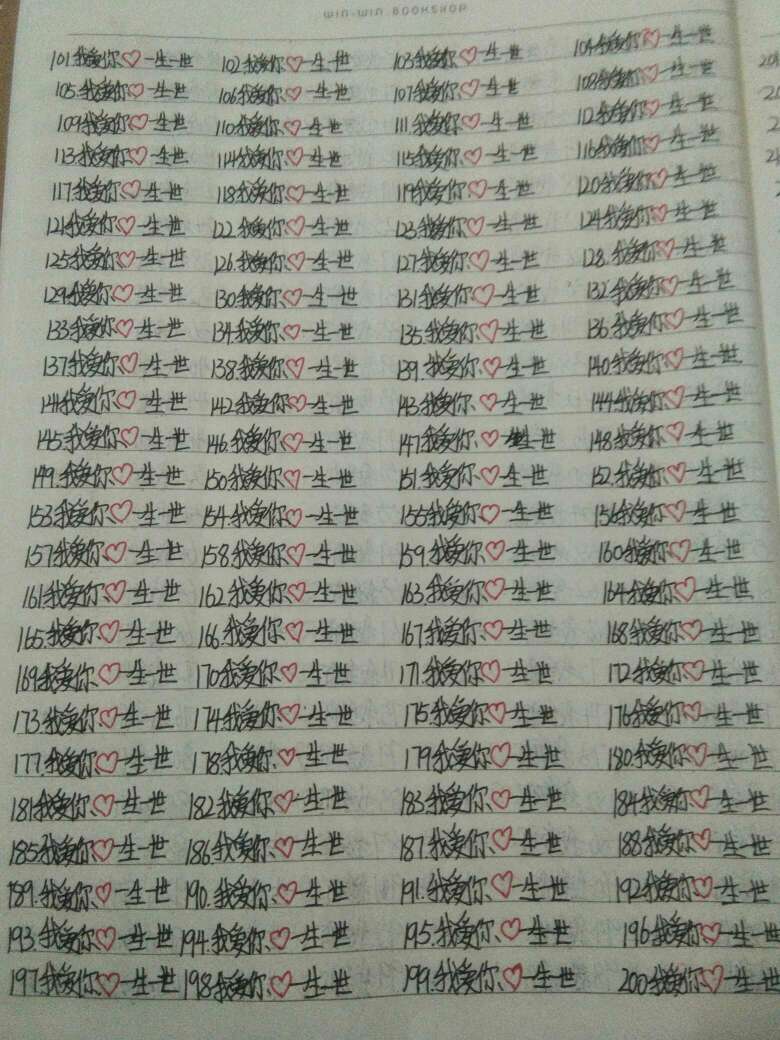 WIN-WIN.BOOKSHOP
101.我爱你♡一生一世 102.我爱你♡一生一世 103.我爱你♡一生一世 104.我爱你♡一生一世
105.我爱你♡一生一世 106.我爱你♡一生一世 107.我爱你♡一生一世 108.我爱你♡一生一世
109.我爱你♡一生一世 110.我爱你♡一生一世 111.我爱你♡一生一世 112.我爱你♡一生一世
113.我爱你♡一生一世 114.我爱你♡一生一世 115.我爱你♡一生一世 116.我爱你♡一生一世
117.我爱你♡一生一世 118.我爱你♡一生一世 119.我爱你♡一生一世 120.我爱你♡一生一世
121.我爱你♡一生一世 122.我爱你♡一生一世 123.我爱你♡一生一世 124.我爱你♡一生一世
125.我爱你♡一生一世 126.我爱你♡一生一世 127.我爱你♡一生一世 128.我爱你♡一生一世
129.我爱你♡一生一世 130.我爱你♡一生一世 131.我爱你♡一生一世 132.我爱你♡一生一世
133.我爱你♡一生一世 134.我爱你♡一生一世 135.我爱你♡一生一世 136.我爱你♡一生一世
137.我爱你♡一生一世 138.我爱你♡一生一世 139.我爱你♡一生一世 140.我爱你♡一生一世
141.我爱你♡一生一世 142.我爱你♡一生一世 143.我爱你♡一生一世 144.我爱你♡一生一世
145.我爱你♡一生一世 146.我爱你♡一生一世 147.我爱你♡一生一世 148.我爱你♡一生一世
149.我爱你♡一生一世 150.我爱你♡一生一世 151.我爱你♡一生一世 152.我爱你♡一生一世
153.我爱你♡一生一世 154.我爱你♡一生一世 155.我爱你♡一生一世 156.我爱你♡一生一世
157.我爱你♡一生一世 158.我爱你♡一生一世 159.我爱你♡一生一世 160.我爱你♡一生一世
161.我爱你♡一生一世 162.我爱你♡一生一世 163.我爱你♡一生一世 164.我爱你♡一生一世
165.我爱你♡一生一世 166.我爱你♡一生一世 167.我爱你♡一生一世 168.我爱你♡一生一世
169.我爱你♡一生一世 170.我爱你♡一生一世 171.我爱你♡一生一世 172.我爱你♡一生一世
173.我爱你♡一生一世 174.我爱你♡一生一世 175.我爱你♡一生一世 176.我爱你♡一生一世
177.我爱你♡一生一世 178.我爱你♡一生一世 179.我爱你♡一生一世 180.我爱你♡一生一世
181.我爱你♡一生一世 182.我爱你♡一生一世 183.我爱你♡一生一世 184.我爱你♡一生一世
185.我爱你♡一生一世 186.我爱你♡一生一世 187.我爱你♡一生一世 188.我爱你♡一生一世
189.我爱你♡一生一世 190.我爱你♡一生一世 191.我爱你♡一生一世 192.我爱你♡一生一世
193.我爱你♡一生一世 194.我爱你♡一生一世 195.我爱你♡一生一世 196.我爱你♡一生一世
197.我爱你♡一生一世 198.我爱你♡一生一世 199.我爱你♡一生一世 200.我爱你♡一生一世